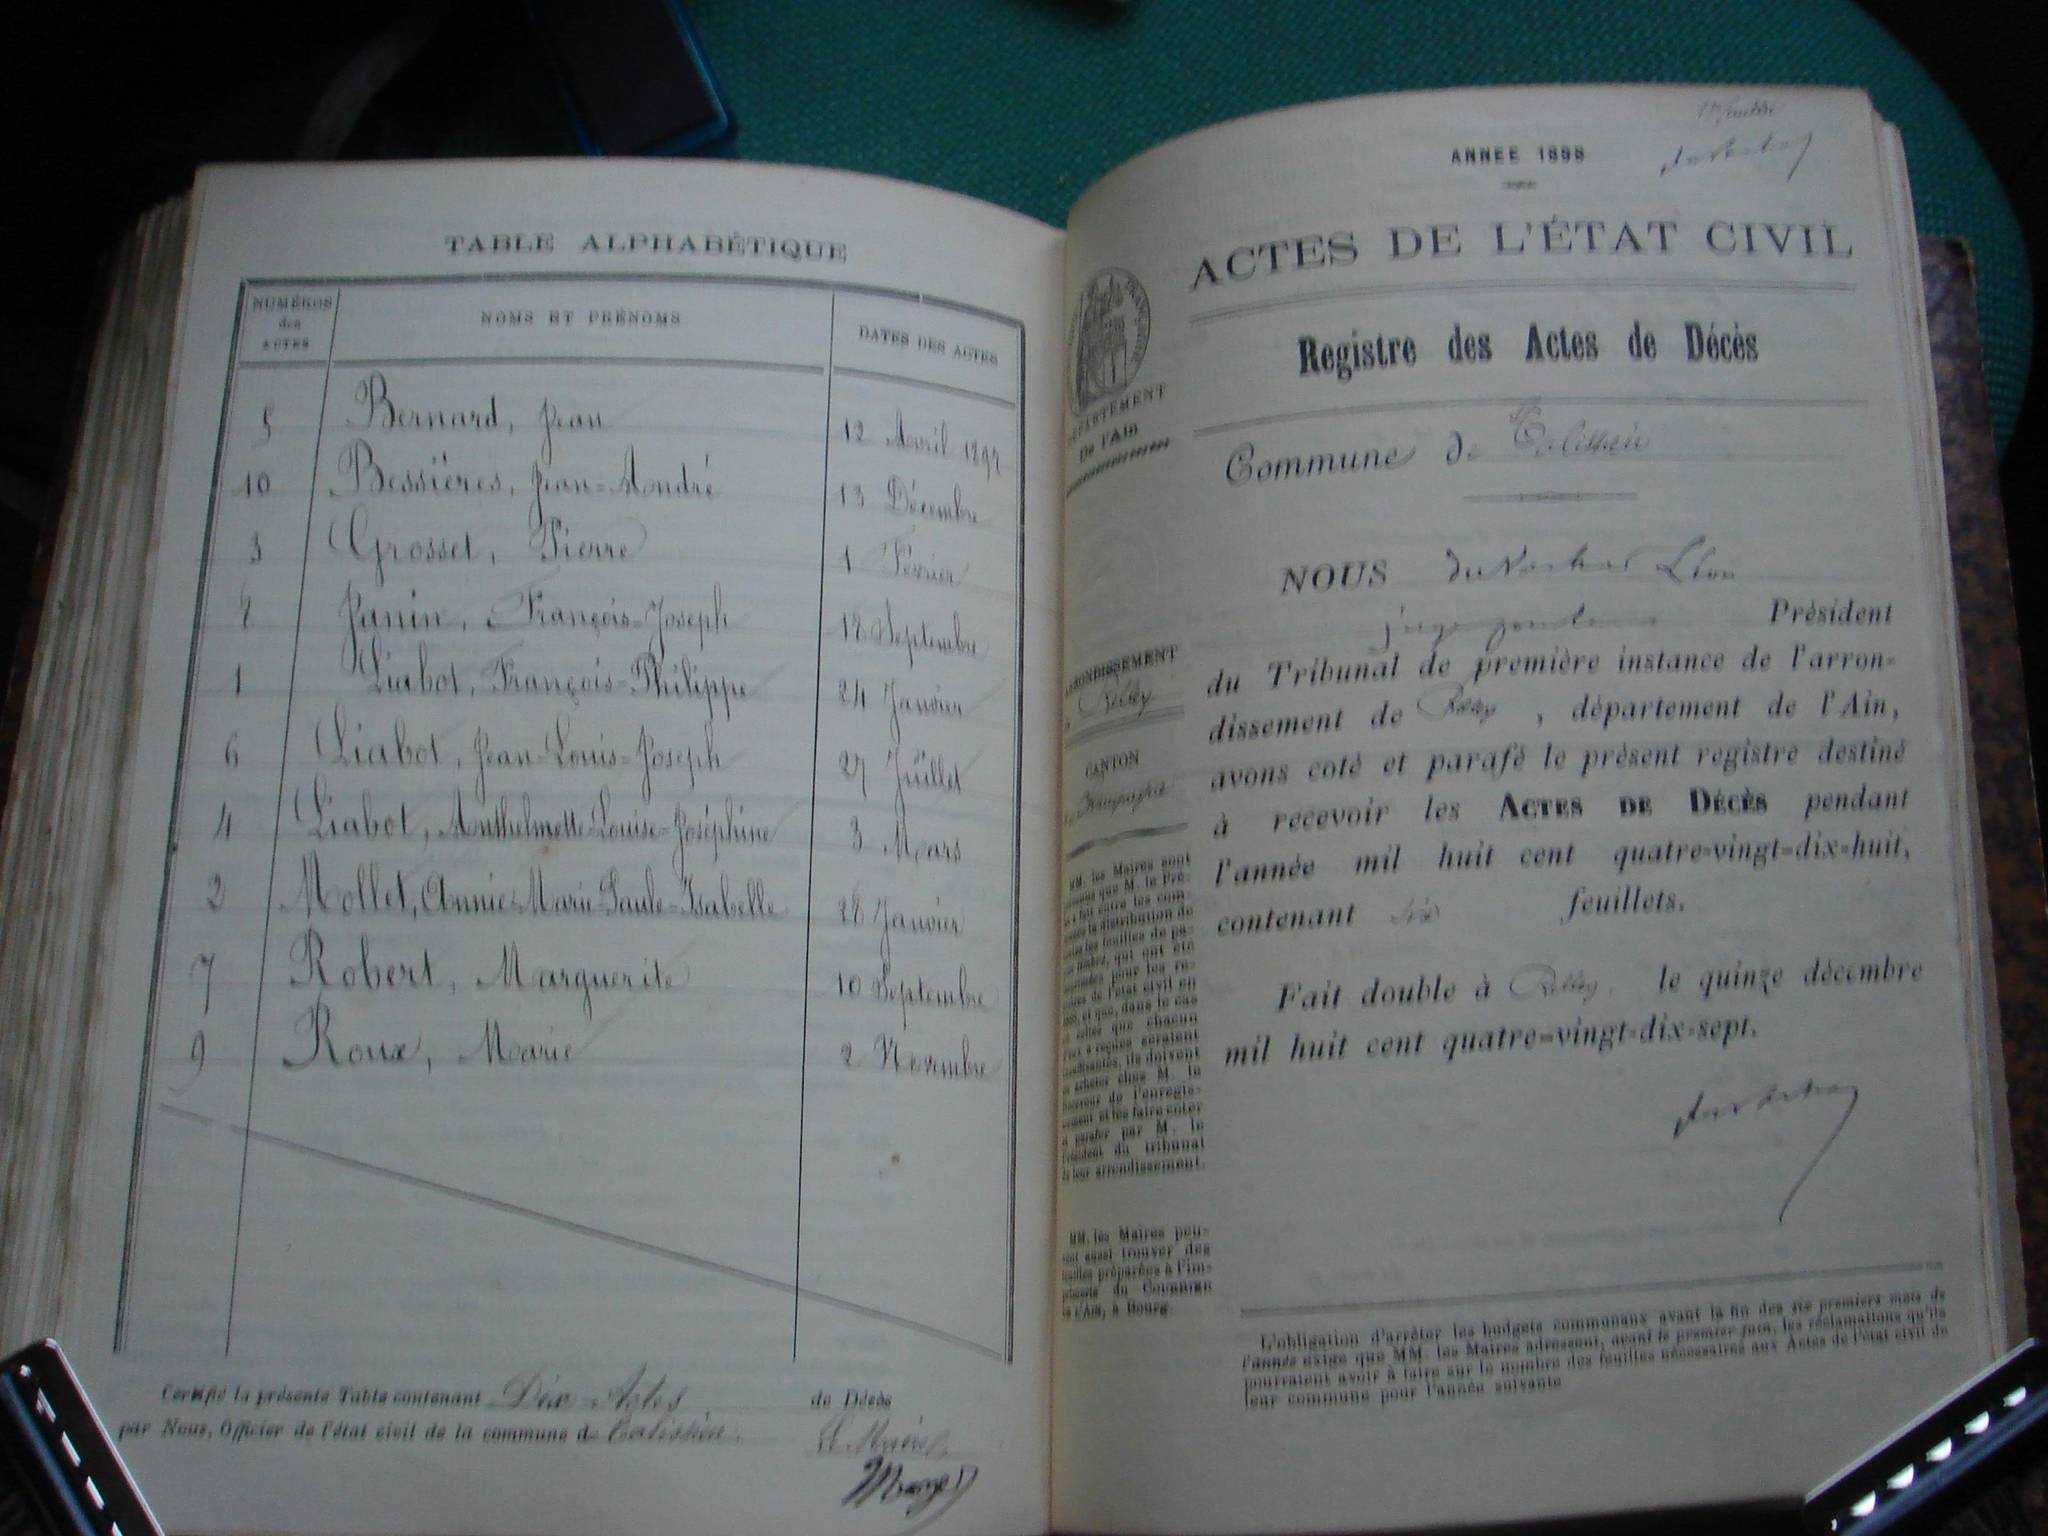 TABLE ALPHABÉTIQUE
NUMÉROS des ACTES
NOMS ET PRÉNOMS
DATES DES ACTES
5 Bernard, Jean 12 Avril 1897
10 Bessières, Jean=André 13 Décembre
3 Grosset, Pierre 1 Février
8 Janin, François-Joseph 18 Septembre
1 Liabot, François=Philippe 24 Janvier
6 Liabot, Jean-Louis-Joseph 27 Juillet
4 Liabot, Anthelmette-Louise=Joséphine 3 Mars
2 Mollet, Annie-Marie-Paule-Isabelle 28 Janvier
7 Robert, Marguerite 10 Septembre
9 Roux, Marie 2 Novembre
Certifié la présente Table contenant Dix Actes de Décès
par Nous, Officier de l'état civil de la commune de
Le Maire
ANNÉE 1898
ACTES DE L'ÉTAT CIVIL
Registre des Actes de Décès
DÉPARTEMENT
De l'Ain
Commune de
NOUS Léon
Président
du Tribunal de première instance de l'arron-
dissement de Belley, département de l'Ain,
avons coté et parafé le présent registre destiné
à recevoir les ACTES DE DÉCÈS pendant
l'année mil huit cent quatre-vingt-dix-huit,
contenant six feuillets.
Fait double à Belley, le quinze décembre
mil huit cent quatre-vingt-dix-sept.
ARRONDISSEMENT
Belley
CANTON
Champagne
MM. les Maires sont
que M. le Pré-
a fait entre les com-
la distribution de
les feuilles de pa-
timbré, qui ont été
pour les re-
de l'état civil en
et que, dans le cas
celles que chacun
reçues seraient
ils doivent
acheter chez M. le
Receveur de l'enregis-
et les faire coter
parafer par M. le
Président du tribunal
de leur arrondissement.
MM. les Maires peu-
aussi trouver des
feuilles préparées à l'im-
du COURRIER
de l'Ain, à Bourg.
L'obligation d'arrêter les budgets communaux avant la fin des six premiers mois de
l'année exige que MM. les Maires adressent, avant le premier juin, les réclamations qu'ils
pourraient avoir à faire sur le nombre des feuilles nécessaires aux Actes de l'état civil de
leur commune pour l'année suivante